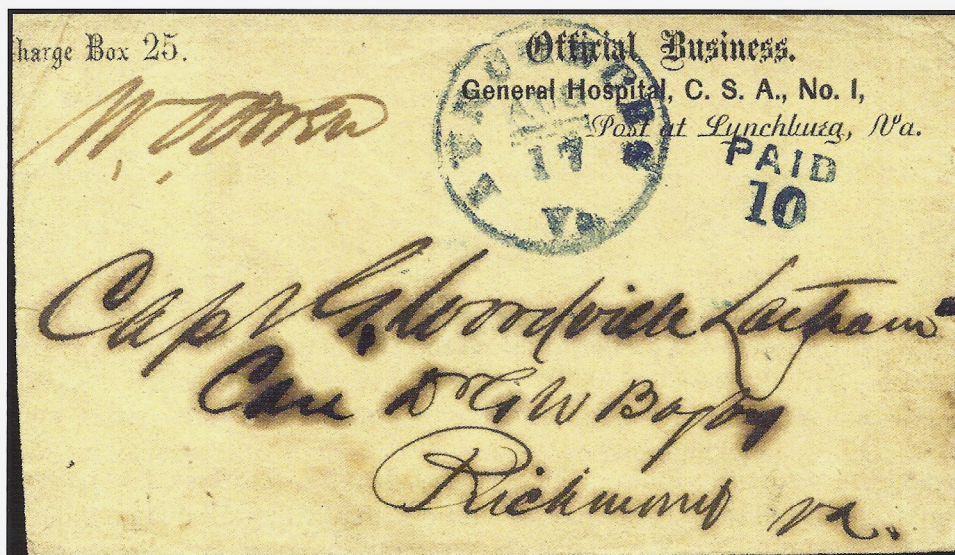 harge Box 25.
Official Business.
General Hospital, C. S. A., No. 1,
Post at Lynchburg, Va.
LYNCHBURG
AUG
17
Va
PAID
10
W. Owen
Capt G. Woodville Latham
Care Dr G W Bagby
Richmond va.